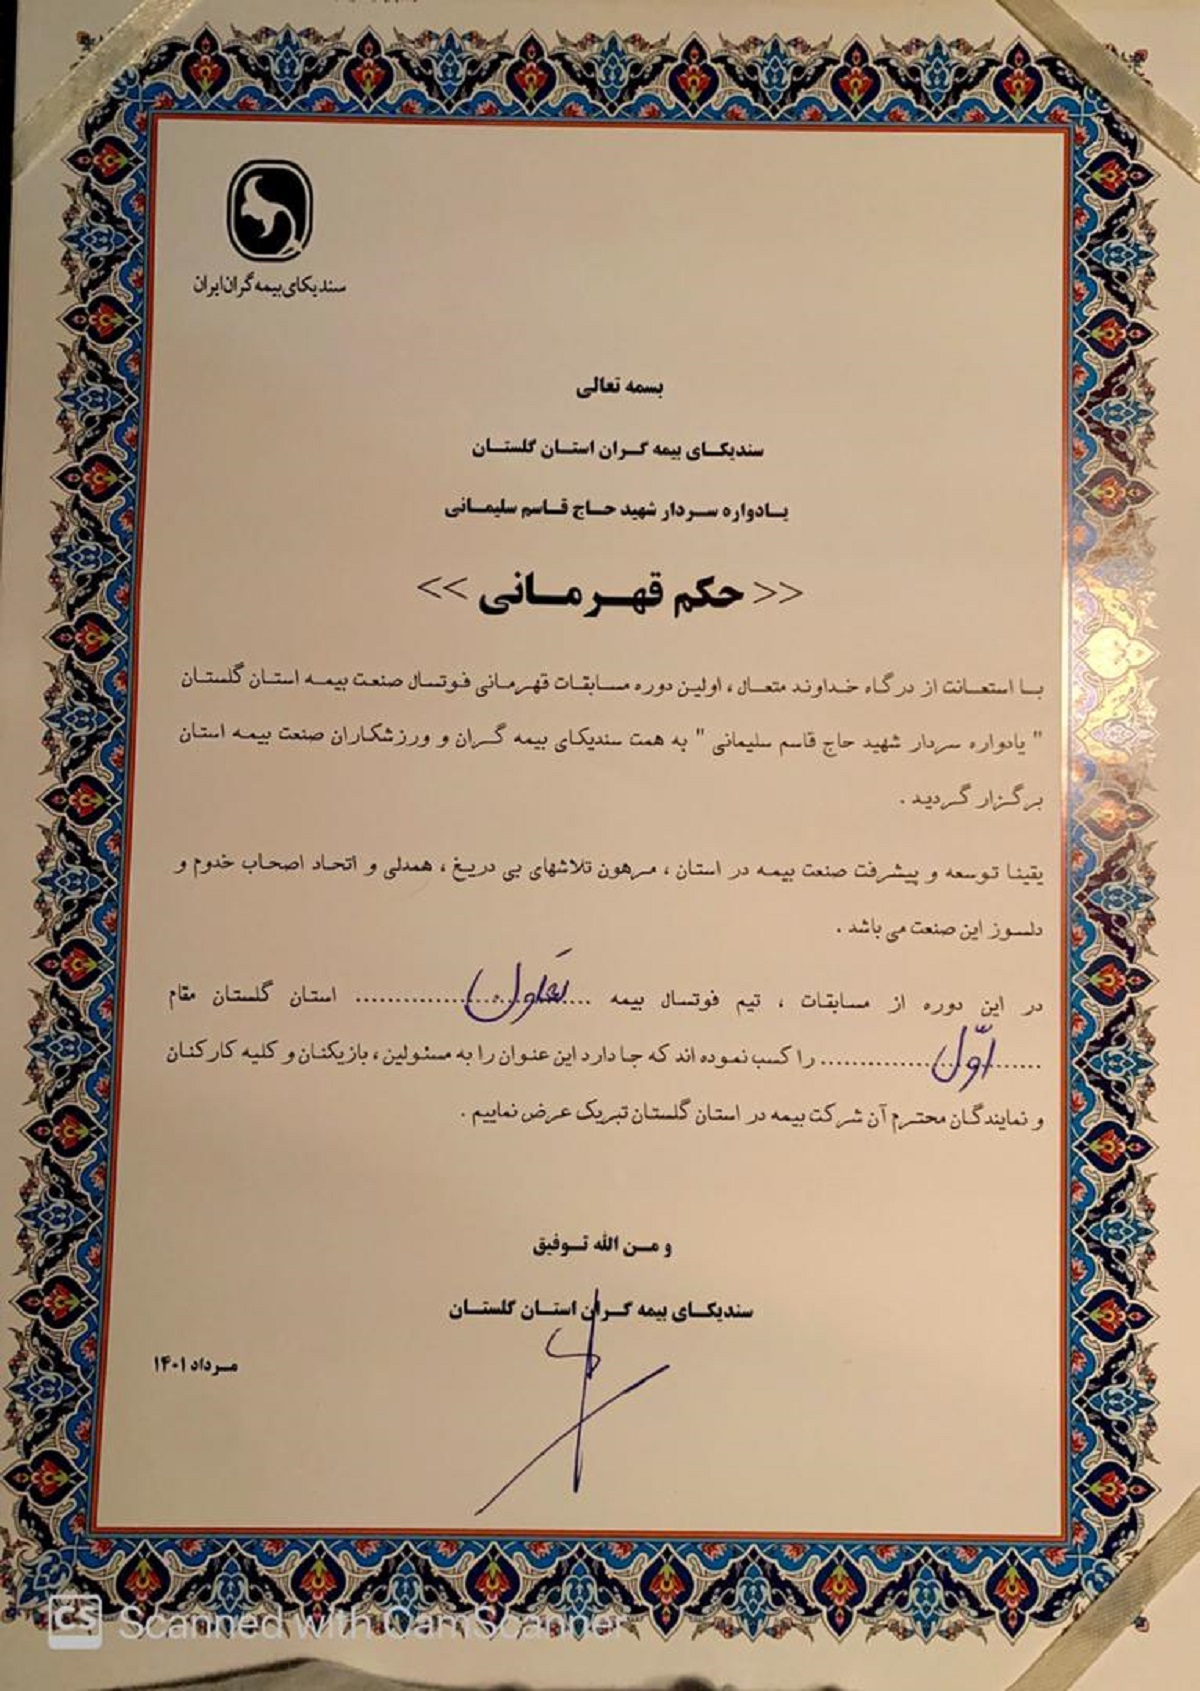 سندیکای بیمه گران ایران
بسمه تعالی
سندیکای بیمه گران استان گلستان
یادواره سردار شهید حاج قاسم سلیمانی
<< حکم قهرمانی >>
با استعانت از درگاه خداوند متعال ، اولین دوره مسابقات قهرمانی فوتسال صنعت بیمه استان گلستان
" یادواره سردار شهید حاج قاسم سلیمانی " به همت سندیکای بیمه گران و ورزشکاران صنعت بیمه استان
برگزار گردید .
یقینا توسعه و پیشرفت صنعت بیمه در استان ، مرهون تلاشهای بی دریغ ، همدلی و اتحاد اصحاب خدوم و
دلسوز این صنعت می باشد .
در این دوره از مسابقات ، تیم فوتسال بیمه .................... استان گلستان مقام
اوّل .................... را کسب نموده اند که جا دارد این عنوان را به مسئولین ، بازیکنان و کلیه کارکنان
و نمایندگان محترم آن شرکت بیمه در استان گلستان تبریک عرض نماییم .
و من الله توفیق
سندیکای بیمه گران استان گلستان
مرداد ۱۴۰۱
CS Scanned with CamScanner